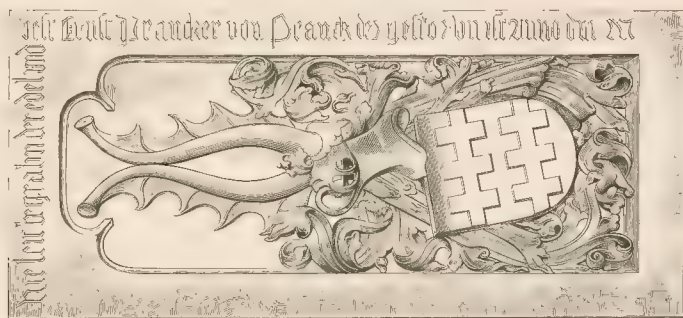 Hie leit begrabn der edel und
vest Ernst Prancker von Pranck der gestorbn ist Anno dni M